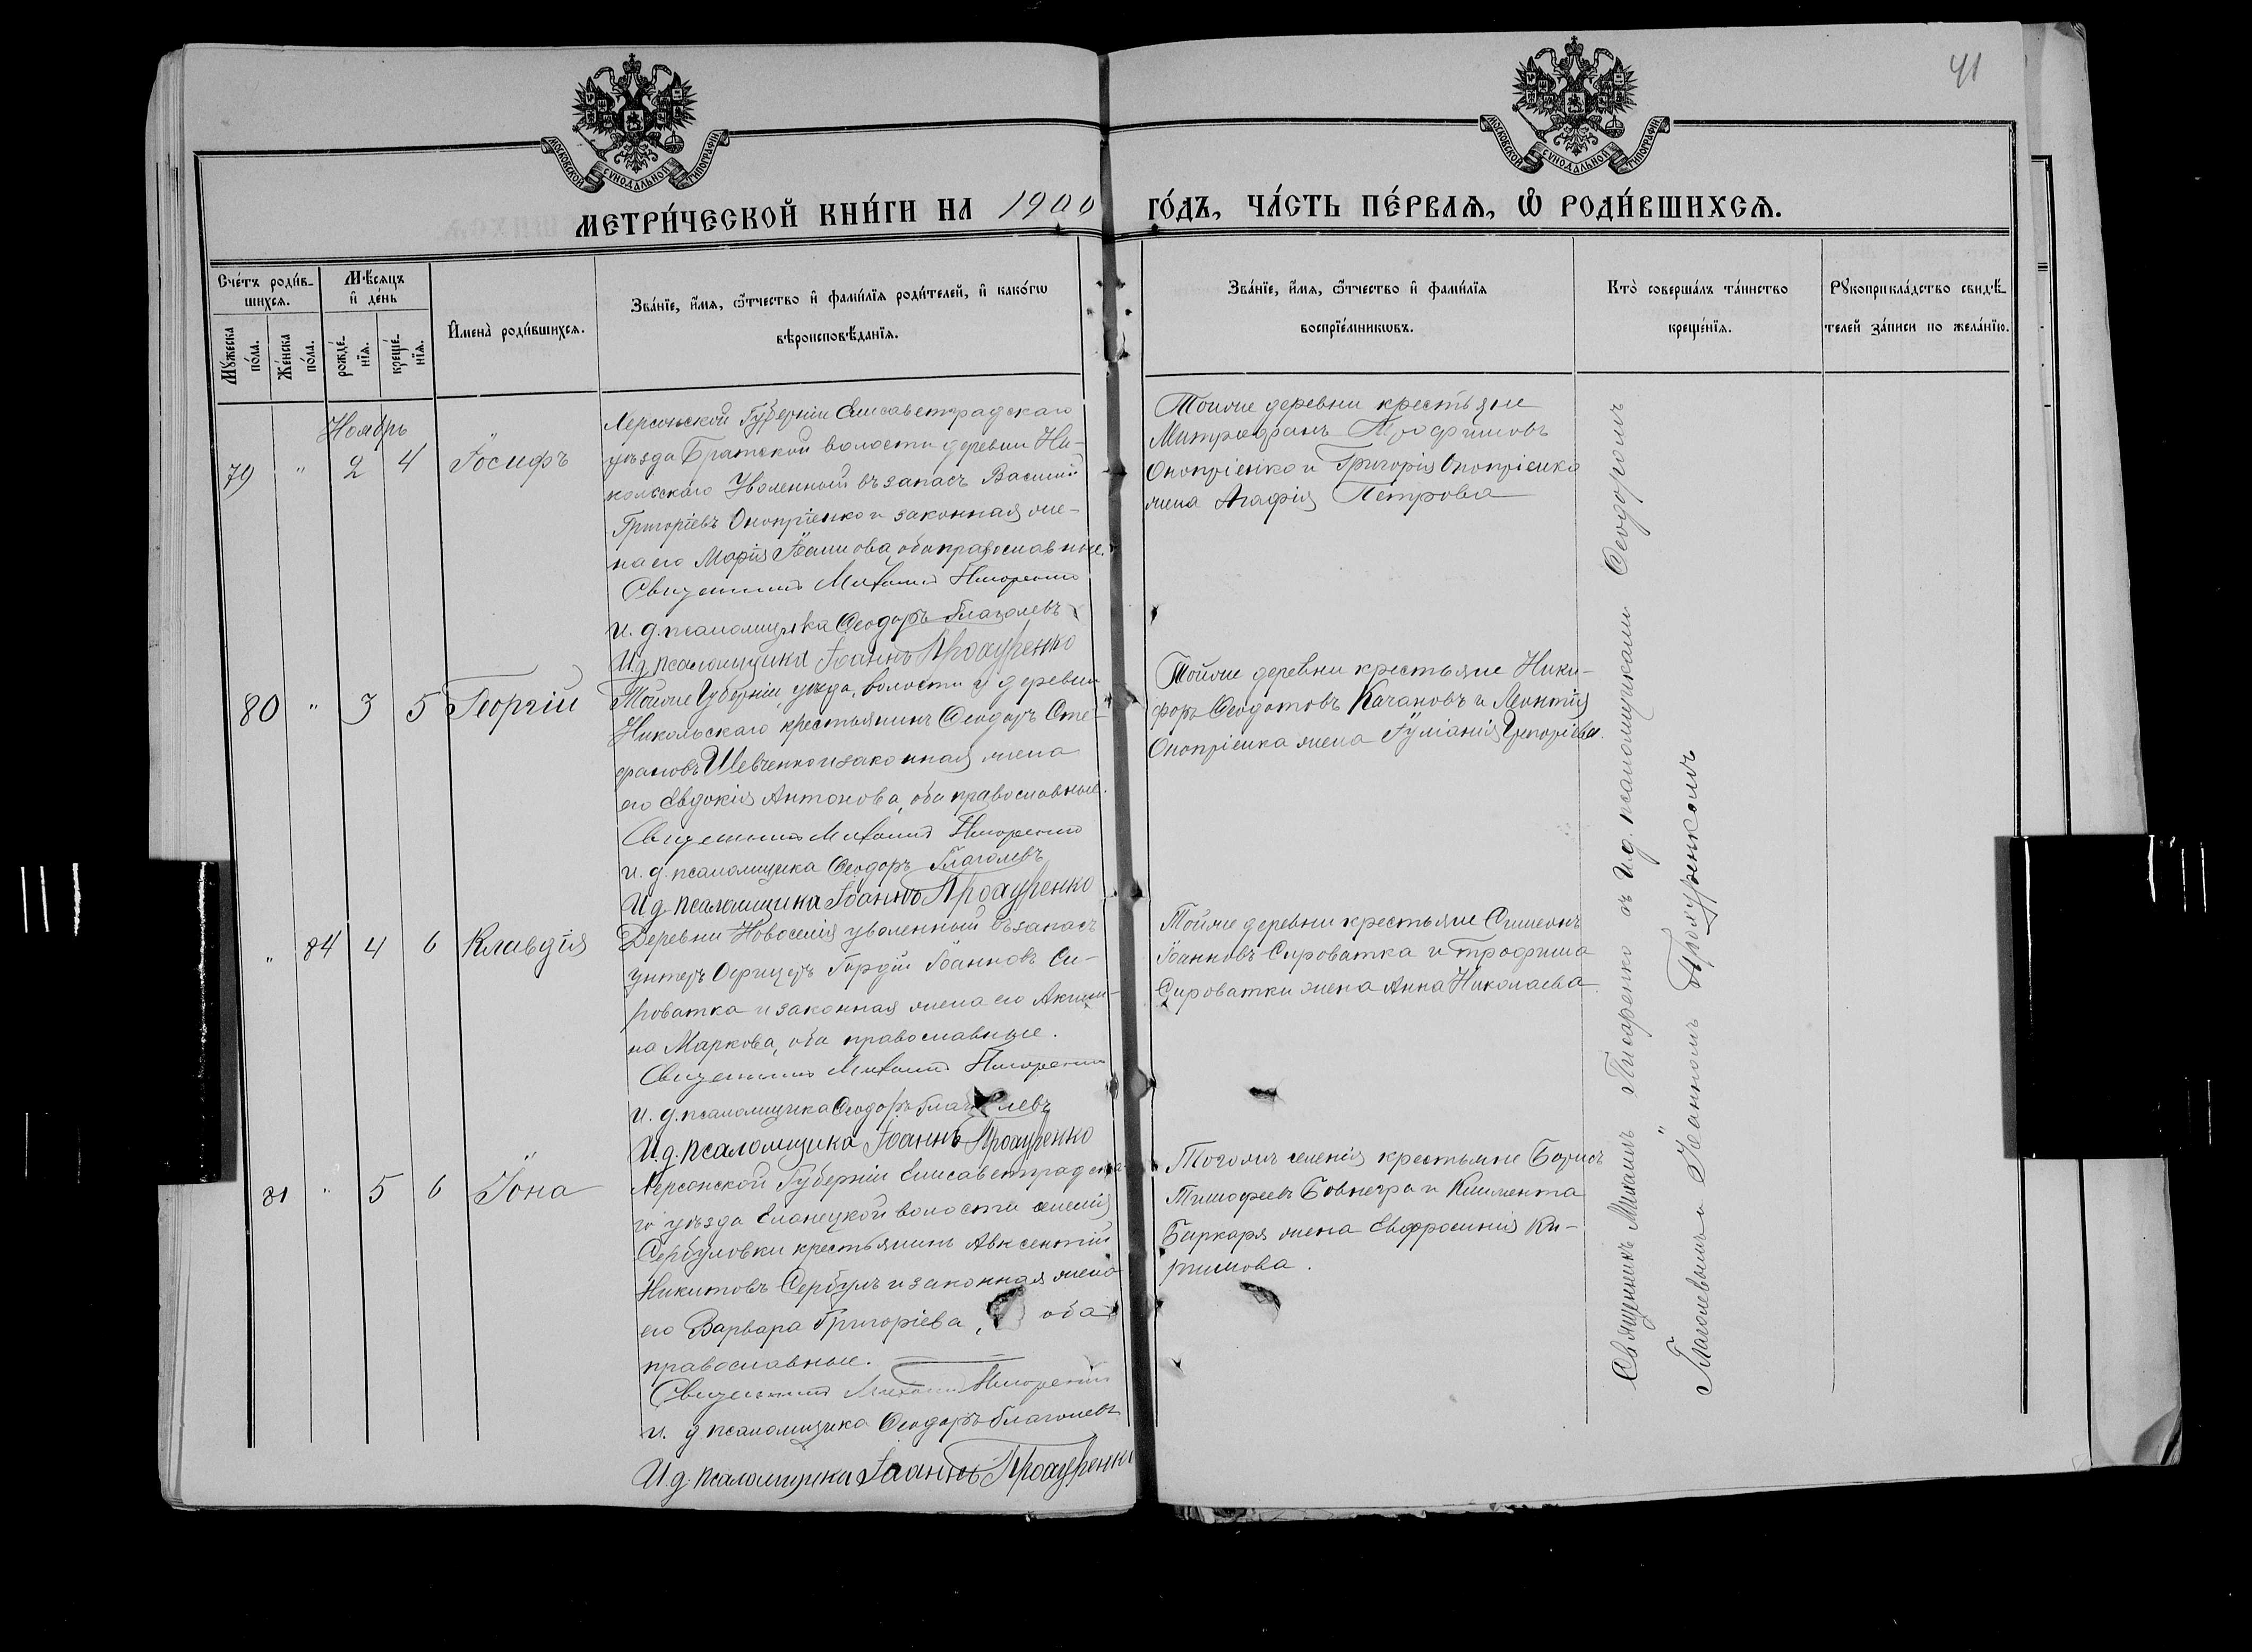 41
МОСКОВСКОЙ СѴНОДАЛЬНОЙ ТИПОГРАФІИ
МОСКОВСКОЙ СѴНОДАЛЬНОЙ ТИПОГРАФІИ
МЕТРИ́ЧЕСКОЙ КНИ́ГИ НА 1900 ГО́ДЪ, ЧА́СТЬ ПЕ́РВАѦ, Ѡ҆ РОДИ́ВШИХСѦ.
Сче́тъ роди́в-
шихсѧ.
Мѣ́сѧцъ
и҆ де́нь
Мꙋ́жеска
по́ла.
Же́нска
по́ла.
рожде́-
нїѧ.
креще́-
нїѧ.
И҆мена̀ роди́вшихсѧ.
Зва́нїе, и҆́мѧ, ѻ҆́тчество и҆ фами́лїѧ роди́телей, и҆ како́гѡ
вѣроисповѣ́данїѧ.
Зва́нїе, и҆́мѧ, ѻ҆́тчество и҆ фами́лїѧ
воспрїе́мникѡвъ.
Кто̀ соверша́лъ та́инство
креще́нїѧ.
Рꙋкоприкла́дство свидѣ́-
телей за́писи по жела́нїю.
Ноябрь
79 " 2 4 Іосифъ
Херсонской Губерніи Елисаветградскаго
уѣзда Братской волости деревни Ни-
кольскаго Уволенный въ запасъ Василій
Григоріевъ Оноприенко и законная же-
на его Марія Іоаннова, оба православные.
Священникъ Михаилъ Писаренко
и. д. псаломщика Ѳеодоръ Глаголевъ
И.д. псаломщика Іоаннъ Прохуренко
Тойже деревни крестьяне
Митрофанъ Трофимовъ
Оноприенко и Григорія Оноприенка
жена Агафія Петрова
80 " 3 5 Георгій
Тойже Губерніи, уѣзда, волости и деревни
Никольскаго крестьянинъ Ѳеодоръ Сте-
фановъ Шевченко и законная жена
его Евдокія Антонова, оба православные.
Священникъ Михаилъ Писаренко
и. д. псаломщика Ѳеодоръ Глаголевъ
И.д. псаломщика Іоаннъ Прохуренко
Тойже деревни крестьяне Ники-
форъ Ѳеодотовъ Качановъ и Леонтія
Оноприенка жена Іуліанія Григоріева.
" 84 4 6 Клавдія
Деревни Новоселія уволенный въ запасъ
унтеръ Офицеръ Гордій Іоанновъ Си-
роватка и законная жена его Акили-
на Маркова, оба православные.
Священникъ Михаилъ Писаренко
и. д. псаломщика Ѳеодоръ Глаголевъ
И.д. псаломщика Іоаннъ Прохуренко
Тойже деревни крестьяне Симеонъ
Іоанновъ Сироватка и Трофима
Сироватки жена Анна Николаева
81 " 5 6 Іона
Херсонской Губерніи Елисаветградска-
го уѣзда Еланецкой волости селенія
Сербуловки крестьянинъ Авксентій
Никитовъ Сербулъ и законная жена
его Варвара Григоріева, оба
православные.
Священникъ Михаилъ Писаренко
и. д. псаломщика Ѳеодоръ Глаголевъ
И.д. псаломщика Іоаннъ Прохуренко
Тогоже селенія крестьяне Борисъ
Тимофеевъ Бовнегра и Климента
Баркаря жена Евфросинія Ки-
рилова.
Священникъ Михаилъ Писаренко съ и.д. псаломщиками Ѳеодоромъ
Глаголевымъ и Іоанномъ Прохуренкомъ